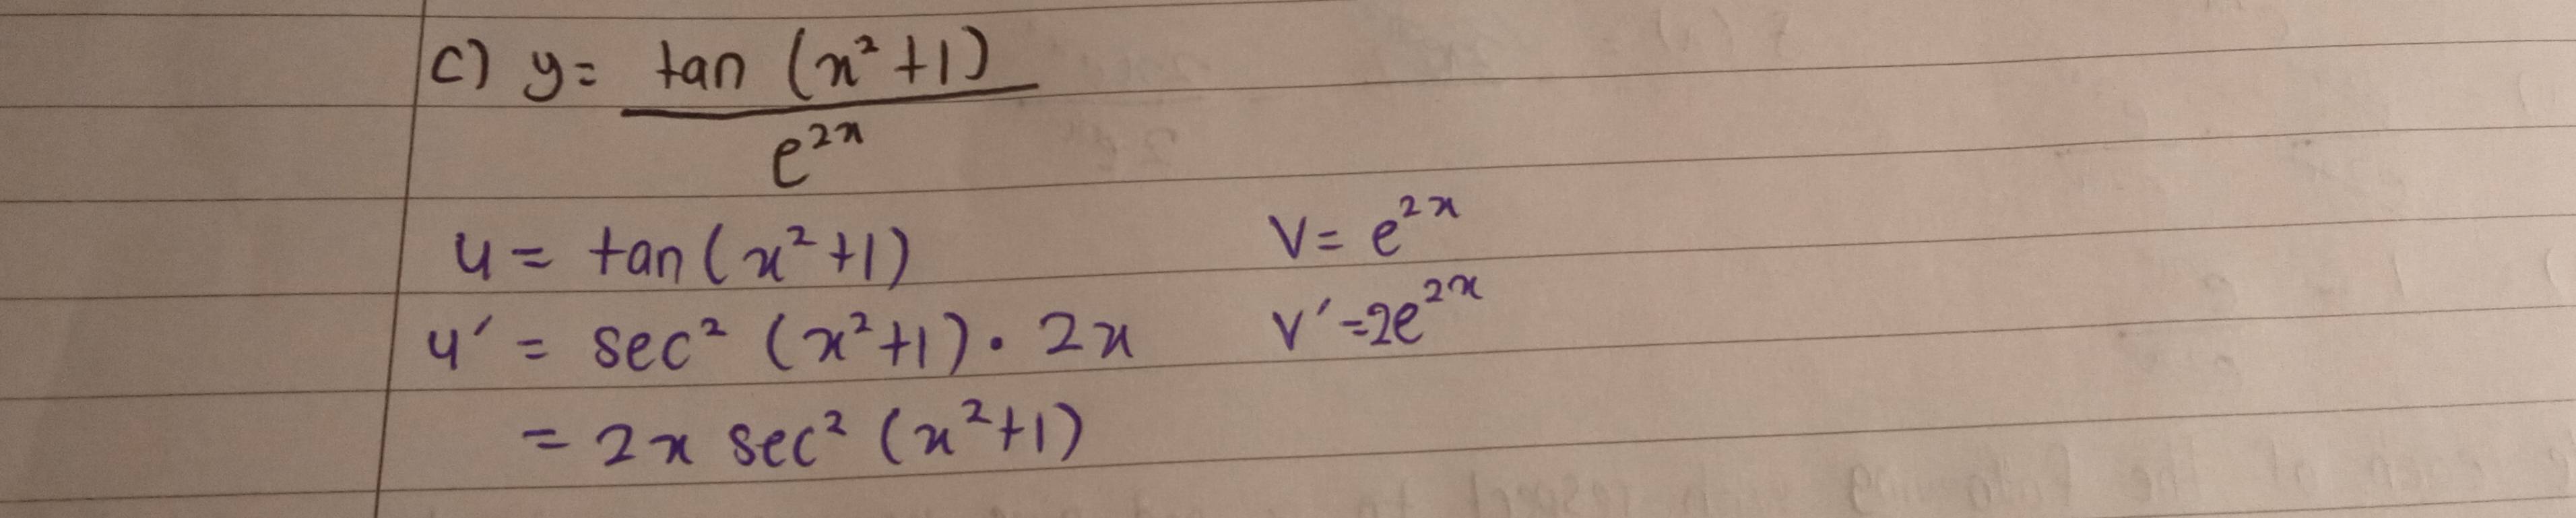 c) y = tan (x² + 1) / e²ˣ
u = tan(x² + 1) v = e²ˣ
u' = sec² (x² + 1) · 2x v' = 2e²ˣ
= 2x sec² (x² + 1)